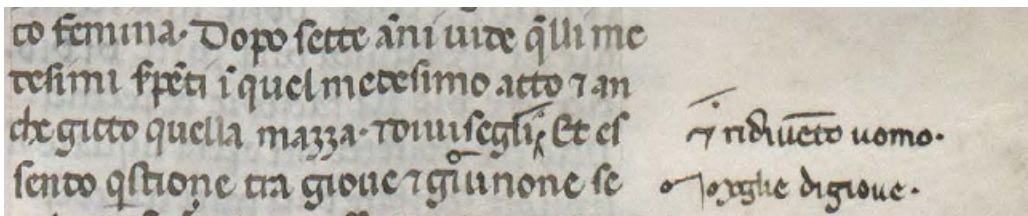 to femina. Dopo sette ãni uide q̃lli me
desimi s̃pẽti ĩ quel medesimo atto ⁊ an
che gitto quella mazza. ⁊ diuisegli Et es
⁊ ridiuẽto uomo.
sendo q̃stione tra gioue ⁊ giunone se
moglie di gioue.